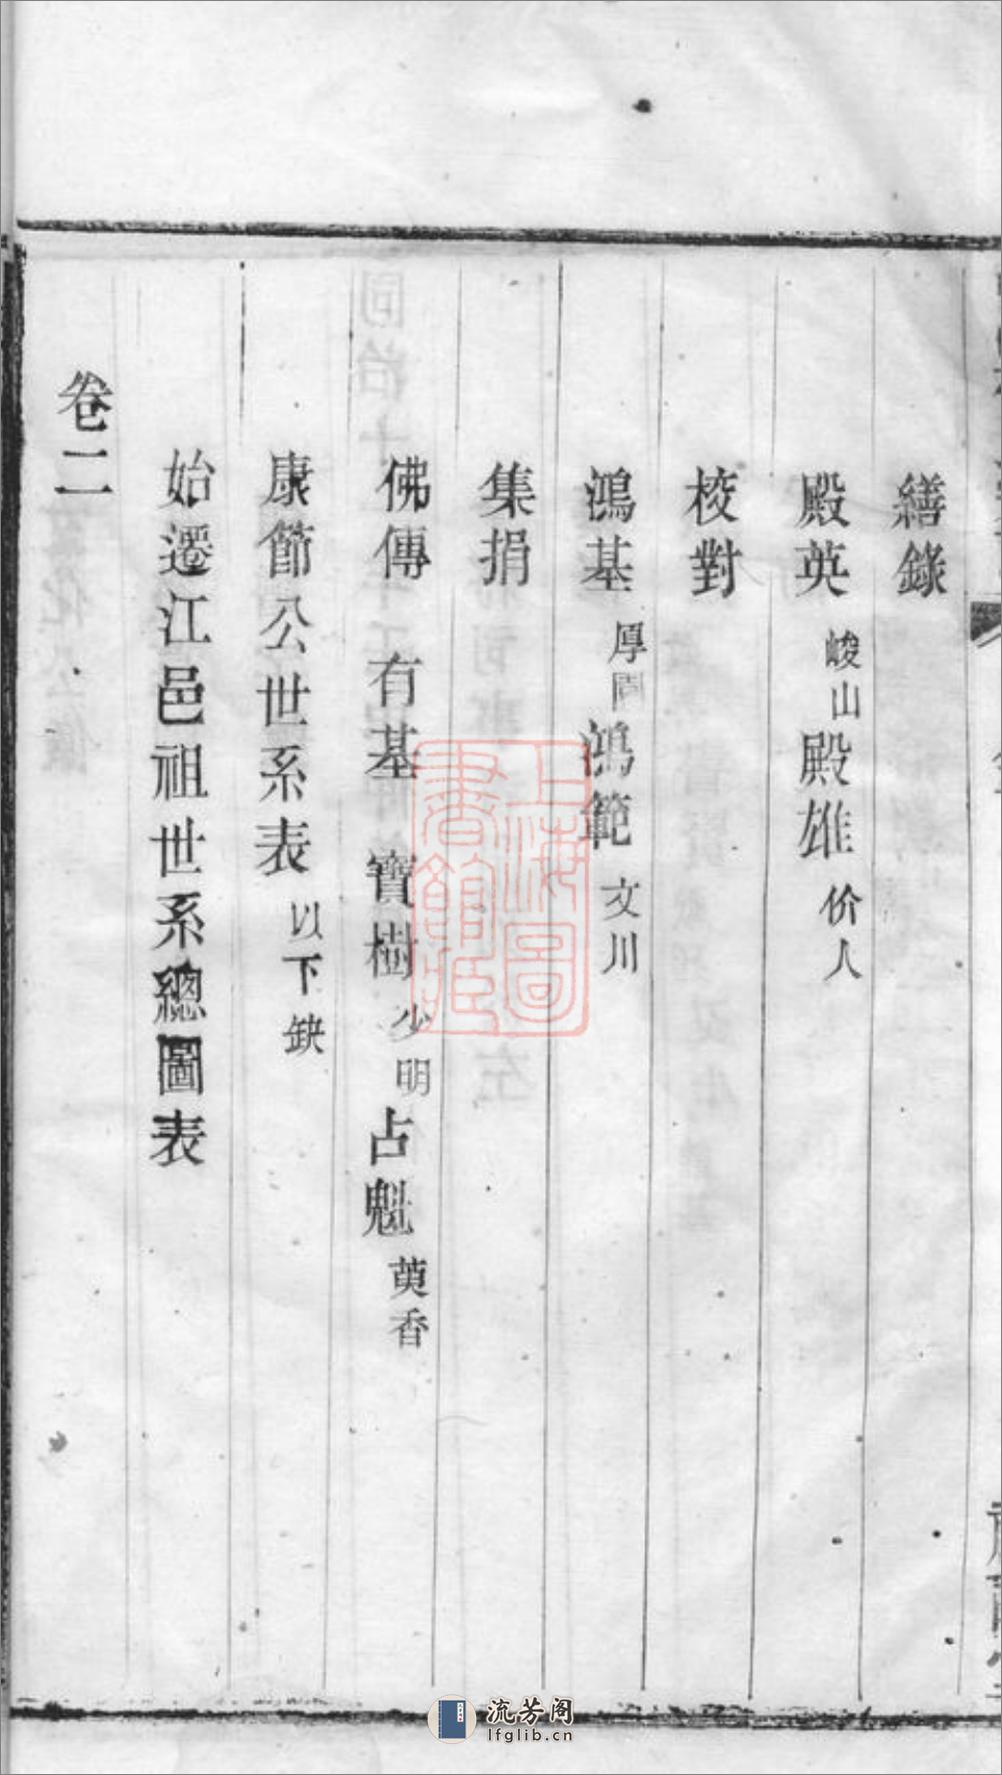 繕錄
殿英 峻山 殿雄 价人
校對
鴻基 厚間 鴻範 文川
集捐
佛傳 有基 寶樹 少明 占魁 萸香
康節公世系表 以下缺
始遷江邑祖世系總圖表
卷二
上海圖書館藏
流芳阁
lfglib.cn